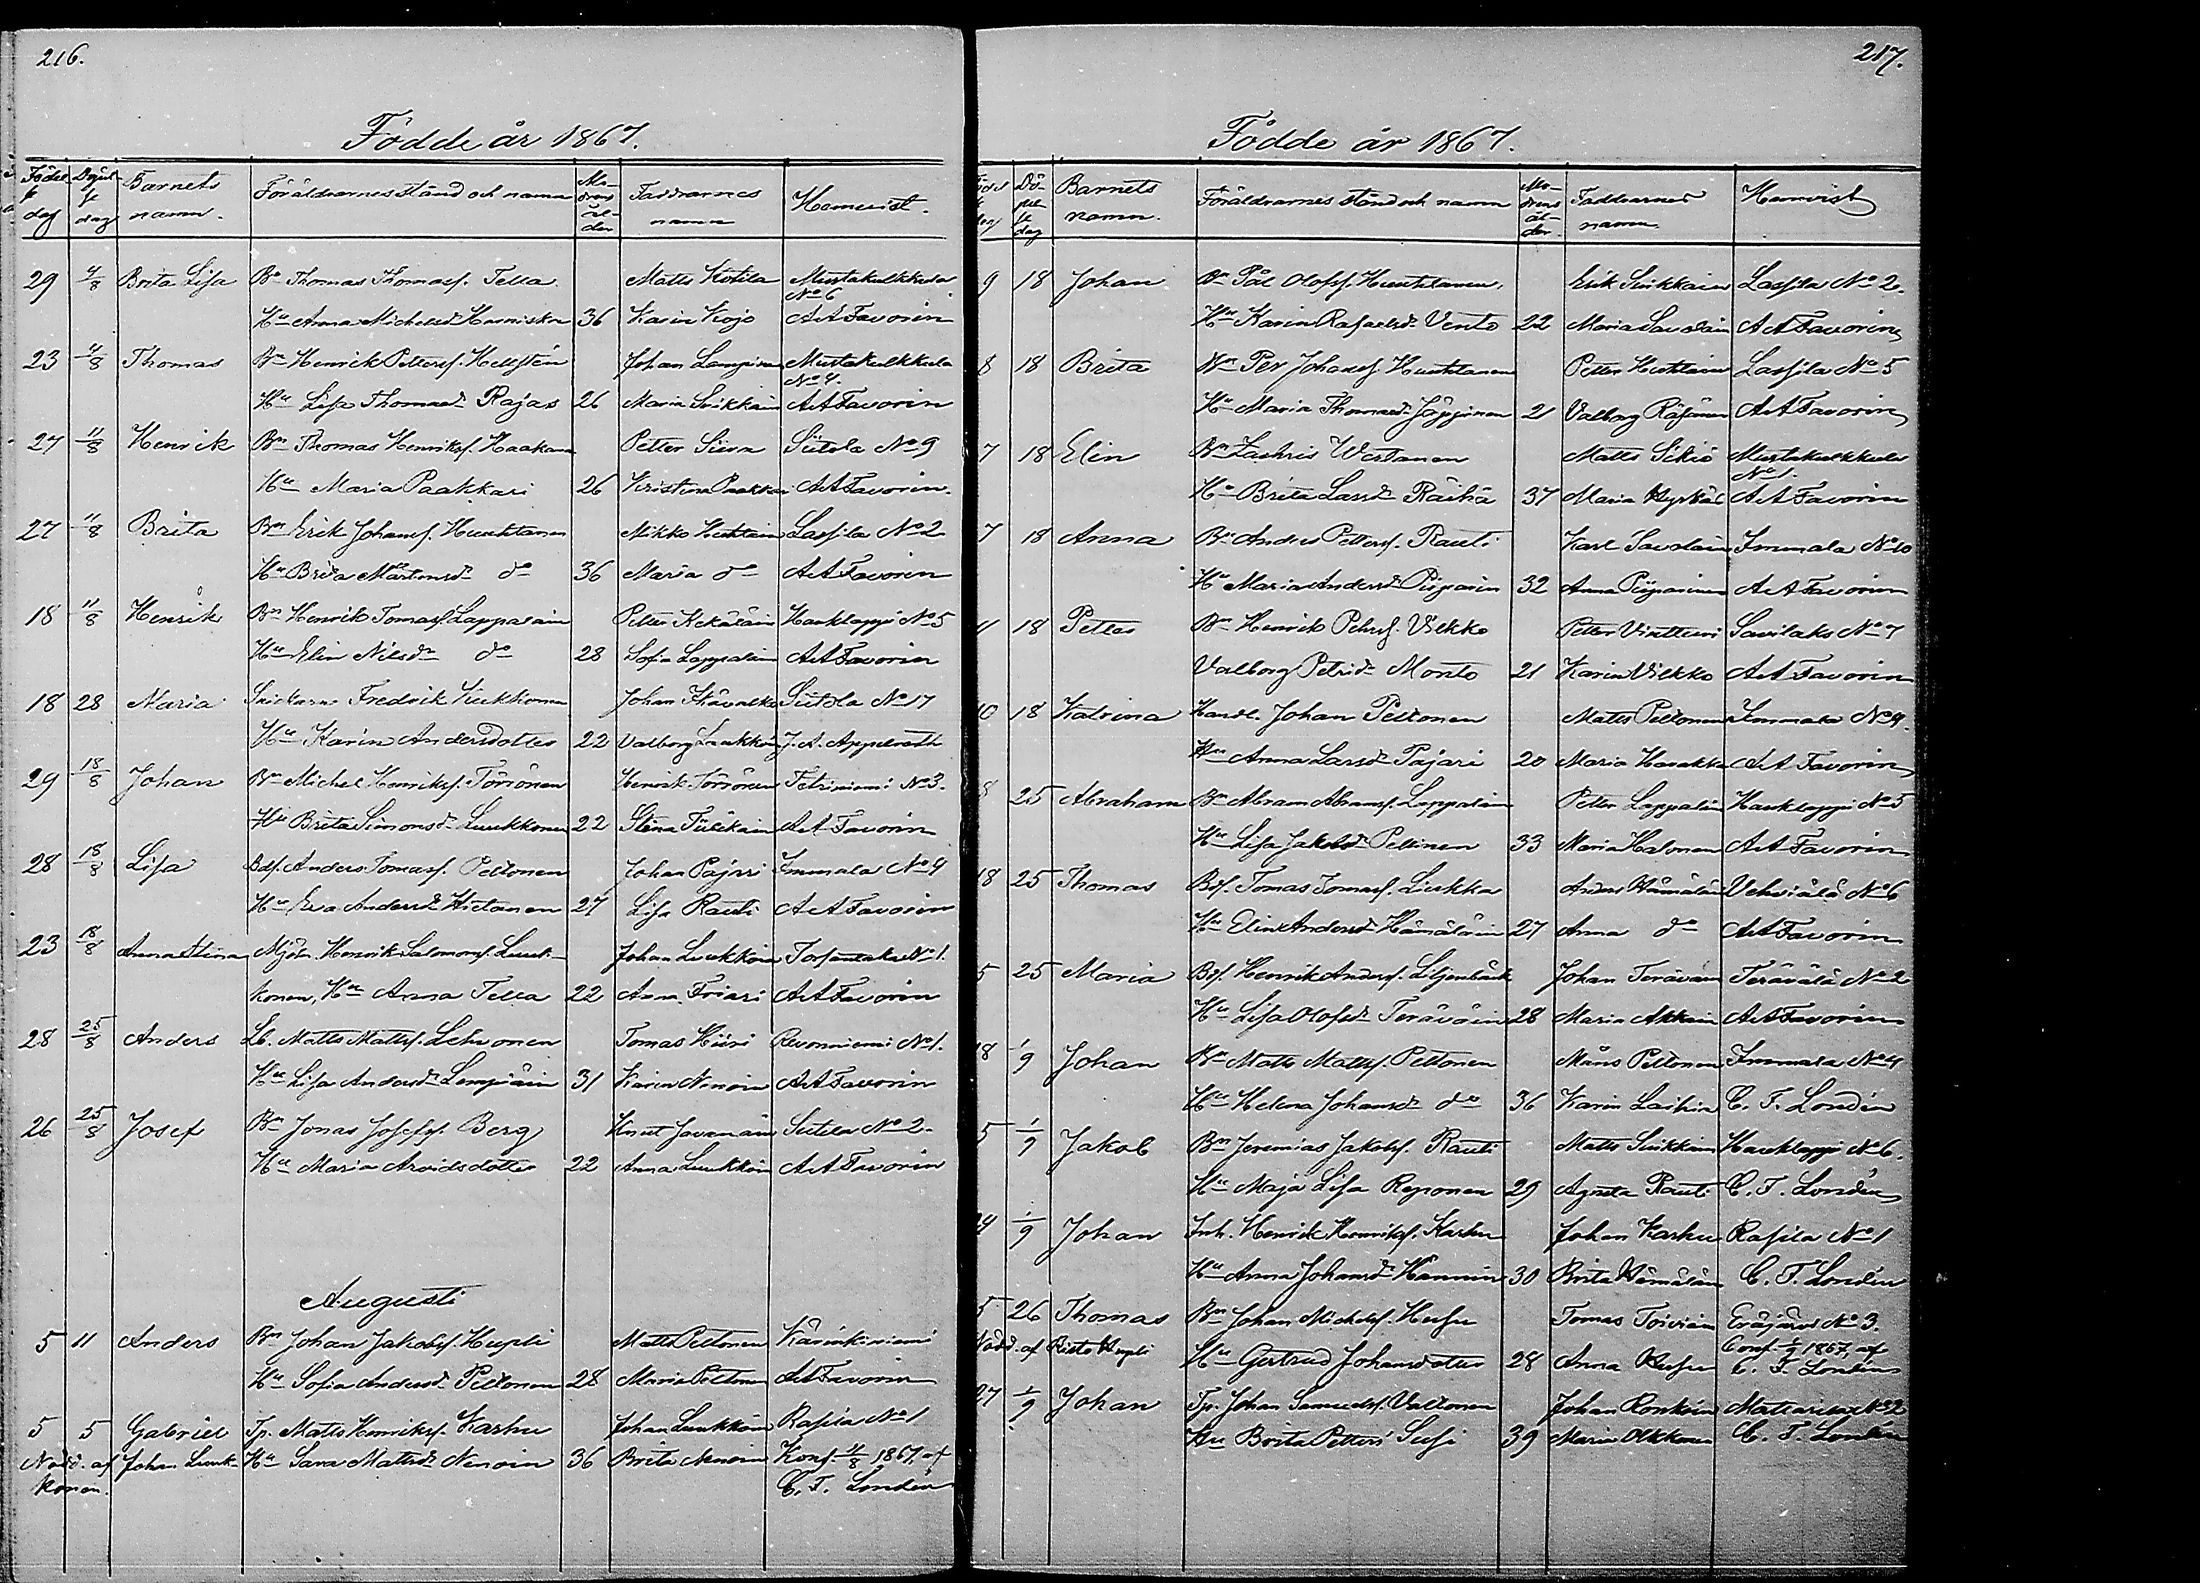 216.
Födde år 1867.
Födelsedag Döpelsedag Barnets namn. Föräldrarnes stånd och namn Modrens ålder Faddrarnes namn Hemvist.
29 4/8 Brita Lisa Bn Thomas Thomasf. Tella Matts Kotila Mustakulkkula No 6
Hu Anna Michelsdr 36 Karin Kojo A A Favorin
23 4/8 Thomas Bn Henrik Pettersf. Hellstén Johan Lempinen Mustakulkkula No 4.
Hu Lisa Thomasdr Rajas 26 Maria Suikkain A A Favorin
27 11/8 Henrik Bn Thomas Henriksf. Haakana Petter Siiva Siitola No 9
Hu Maria Paakkari 26 Kristina Paakkari A A Favorin.
27 11/8 Brita Bn Erik Johansf. Huuhtanen Mikko Huhtain Lassila No 2
Hu Brita Mårtensdr do 36 Maria do A A Favorin
18 11/8 Henrik Bn Henrik Tomasf. Lappalain Petter Kekäläin Hauklappi No 5
Hu Elin Nilsdr do 28 Sofia Lappalain A A Favorin
18 28 Maria Snickaren Fredrik Luukkonen Johan Siitola No 17
Hu Karin Andersdotter 22 Valborg Luukkoin J. A. Appelroth
29 18/8 Johan Bn Michel Henriksf. Törrönen Henrik Törrönen Petriniemi No 3.
Hu Brita Simonsdr Luukkonen 22 Stina Tiilikain A A Favorin
28 18/8 Lisa Bdf. Anders Tomasf. Peltonen Johan Pajari Immala No 9
Hu Eva Andersdr Hietanen 27 Lisa Rauti A A Favorin
23 18/8 Anna Stina Mjöln. Henrik Salomonsf. Luuk- Johan Luukkoin Torsansalo No 1.
konen, Hu Anna Tella 22 Anna Friari A A Favorin
28 25/8 Anders Lb. Matts Mattsf. Lehvonen Tomas Hiiri Revonniemi No 1.
Hu Lisa Andersdr Lempiäin 31 Karin Nenoin A A Favorin
26 25/8 Josef Bn Jonas Josefsf. Berg Knut Javanain Siitola No 2.
Hu Maria Arvidsdotter 22 Anna Luukkoin A A Favorin
Augusti
5 11 Anders Bn Johan Jakobsf. Hupli Matts Peltonen Kärinkiniemi
Hu Sofia Andersdr Peltonen 28 Maria Peltonen A A Favorin
5 5 Gabriel Tp. Matts Henriksf. Karhu Johan Luukkoin Rasila No 1
Nödd. af Johan Luuk- Hu Sara Mattsdr Nenoin 36 Brita Nenoin Konf. 4/8 1867, af
konen. C. F. Londén
217.
Födde år 1867.
Födelsedag Döpelsedag Barnets namn. Föräldrarnes stånd och namn Modrens ålder. Faddrarnes namn. Hemvist
9 18 Johan Bn Pål Olofsf. Huuhtanen. Erik Suikkain Lassila No 2.
Hu Karin Rafaelsdr Vento 22 Maria Savolain A A Favorin
8 18 Brita Bn Per Johansf. Huuhtanen Petter Huhtain Lassila No 5
Hu Maria Thomasdr Jäppinen 21 Valborg Räsänen A A Favorin
7 18 Elin Bn Zachris Wertanen Matts Sikiö Mustakulkkula No 1.
Hu Brita Larsdr Räihä 37 Maria Hyrkäs A A Favorin
7 18 Anna Bn Anders Pettersf. Rauti Karl Savolain Immala No 10
Hu Maria Andersdr Piiparin 32 Anna Piiparinen A A Favorin
4 18 Petter Bn Henrik Petersf. Vilkko Petter Vinttturi Savilaks No 7
Valborg Petridr Monto 21 Karin Vilkko A A Favorin
10 18 Katrina Handl. Johan Peltonen Matts Peltonen Immala No 9.
Hu Anna Larsdr Pajari 20 Maria Haakka A A Favorin
8 25 Abraham Bn Abram Abramsf. Lappalain Petter Lappalain Hauklappi No 5
Hu Lisa Jakobsdr Pellinen 33 Maria Halonen A A Favorin
18 25 Thomas Bdf. Tomas Tomasf. Liukka Anders Hämäläin Vehviälä No 6
Hu Elin Andersdr Hämäläin 27 Anna do A A Favorin
5 25 Maria Bdf. Henrik Andersf. Liljenbäck Johan Teräväin Terävälä No 2
Hu Lisa Olofsdr Teräväin 28 Maria Akkain A A Favorin
18 1/9 Johan Bn Matts Mattsf. Peltonen Måns Peltonen Immala No 4
Hu Helena Johansdr do 36 Karin Laihia C. F. Londén
5 1/9 Jakob Bn Jeremias Jakobsf. Rauti Matts Suikkain Hauklappi No 6.
Hu Maja Lisa Reponen 29 Agneta Rauti C. F. Londén
24 1/9 Johan Inh. Henrik Henriksf. Karhu Johan Karhu Rasila No 1
Hu Anna Johansdr Hannin 30 Brita Hämäläin C. F. Londén
5 26 Thomas Bn Johan Michelsf. Husu Tomas Toiviain Eräjärvi No 3.
Nödd. af Risto Hupli Hu Gertrud Johansdotter 28 Anna Husu Conf. 1/9 1867, af C. F. Londén
27 1/9 Johan Tp. Johan Samuelsf. Valtonen Johan Ronkain Matiarila No 32
Hu Brita Petters Susi 39 Maria Olkkonen C. F. Londén